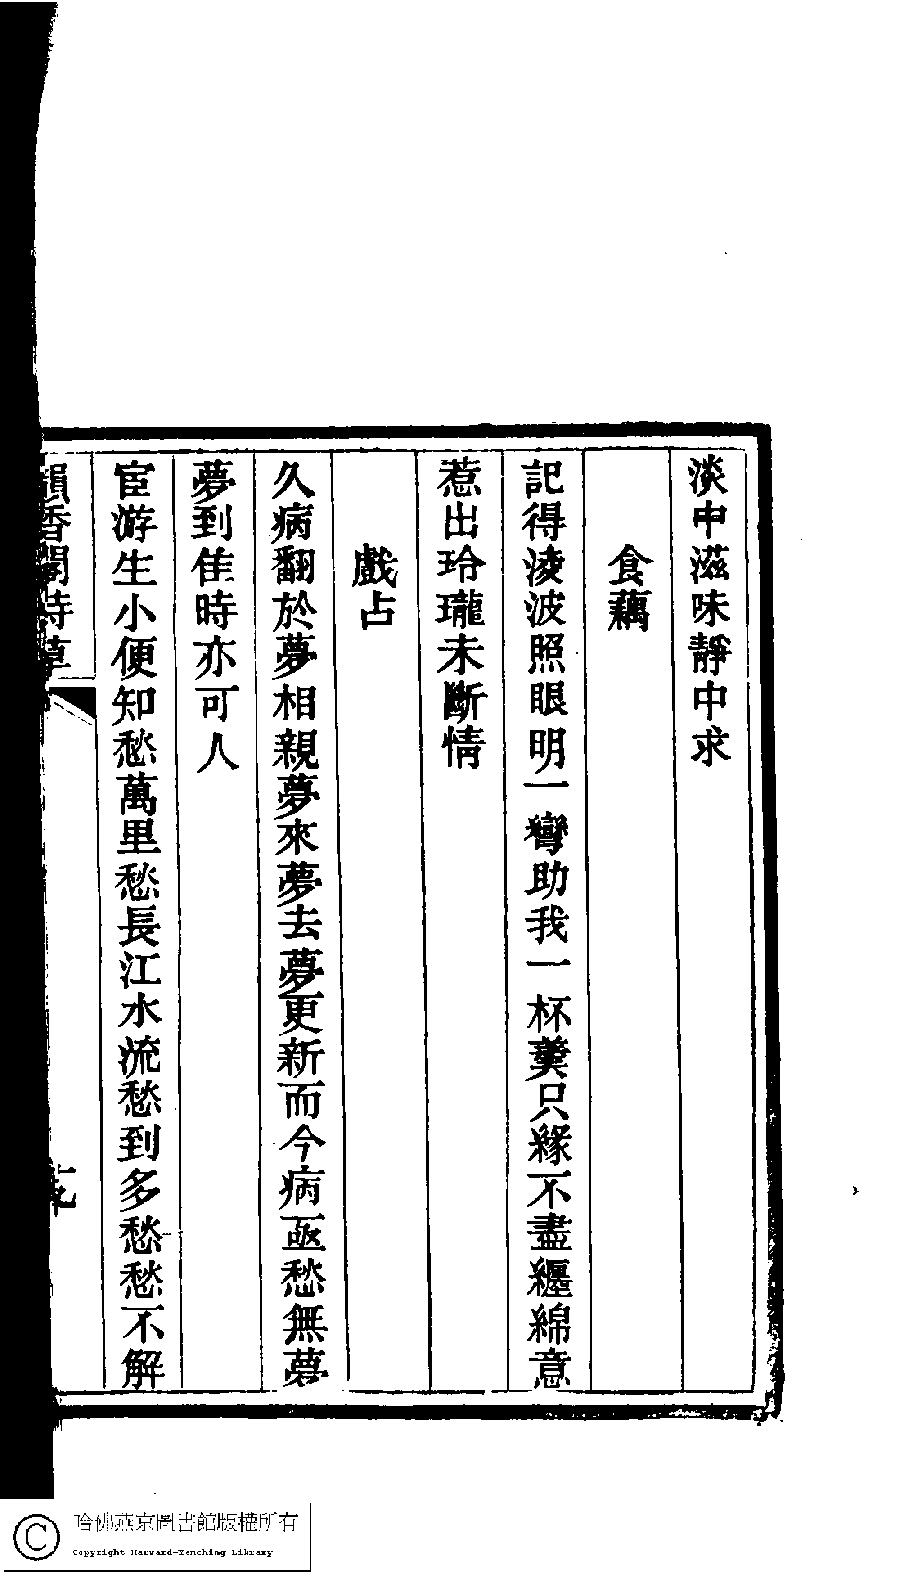 淡中滋味靜中求
食藕
記得淩波照眼明一彎助我一杯羹只緣不盡纏綿意
惹出玲瓏未斷情
戲占
久病翻於夢相親夢來夢去夢更新而今病亟愁無夢
夢到佳時亦可人
宦游生小便知愁萬里愁長江水流愁到多愁愁不解
韻香閣詩草
哈佛燕京圖書館版權所有
Copyright Harvard-Yenching Library